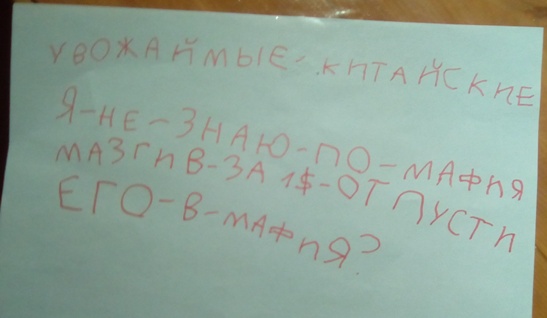 УВОЖАЙМЫЕ-КИТАЙСКИЕ
Я-НЕ-ЗНАЮ-ПО-МАФИЯ
МАЗГИВ-ЗА 1$-ОТПУСТИ
ЕГО-В-МАФИЯ?